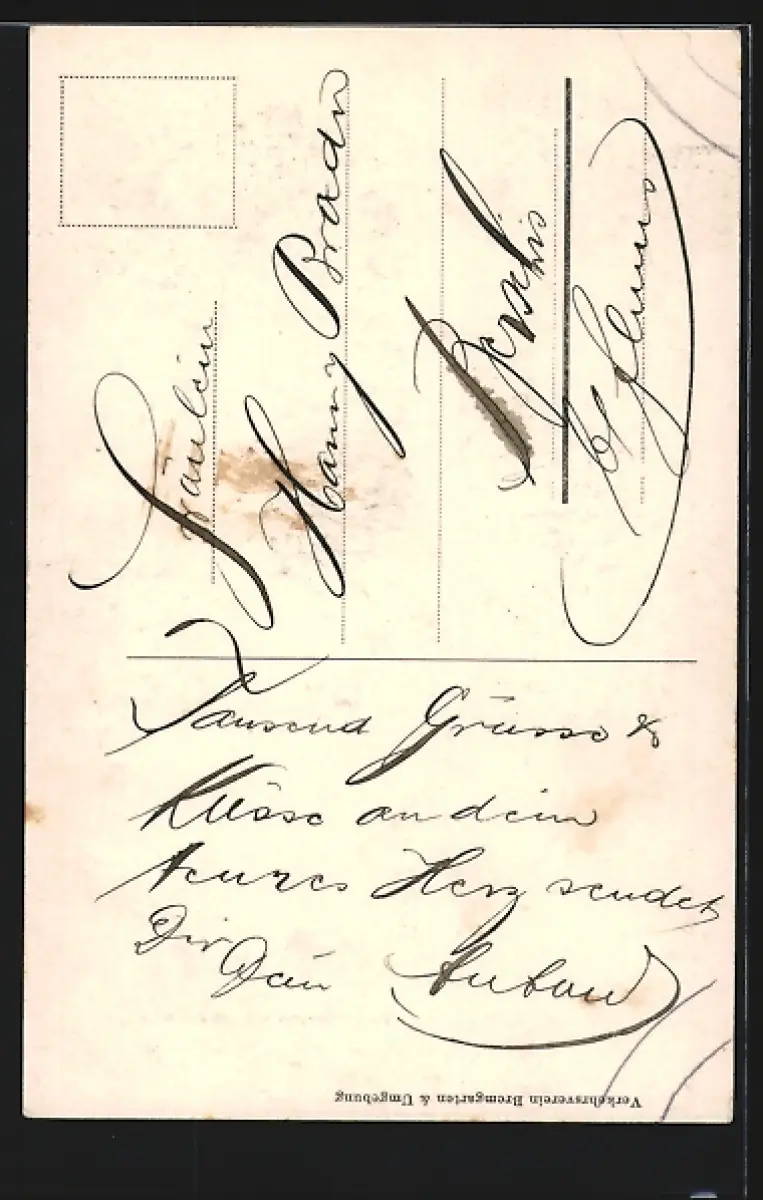 Fräulein
Hanny Brader
Tausend Grüsse &
Küsse an dein
teures Herz sendet
Dir Dein
Verkehrsverein Bremgarten & Umgebung